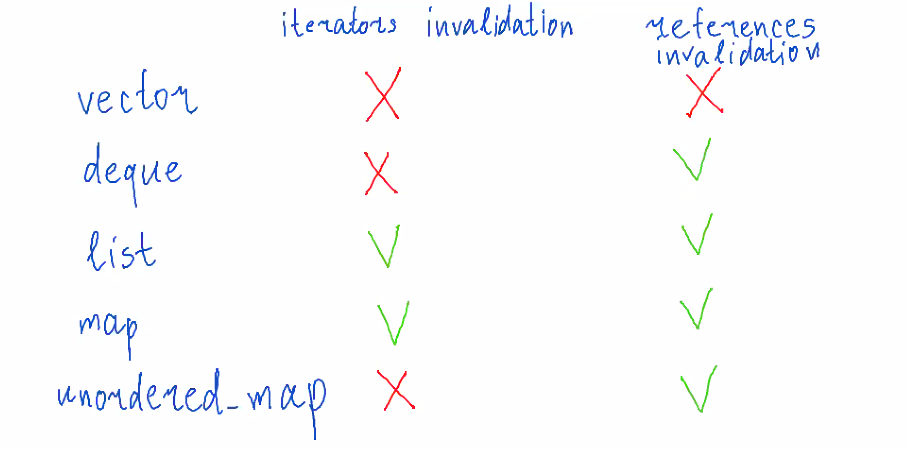 iterators invalidation references
invalidation
vector X X
deque X V
list V V
map V V
unordered_map X V